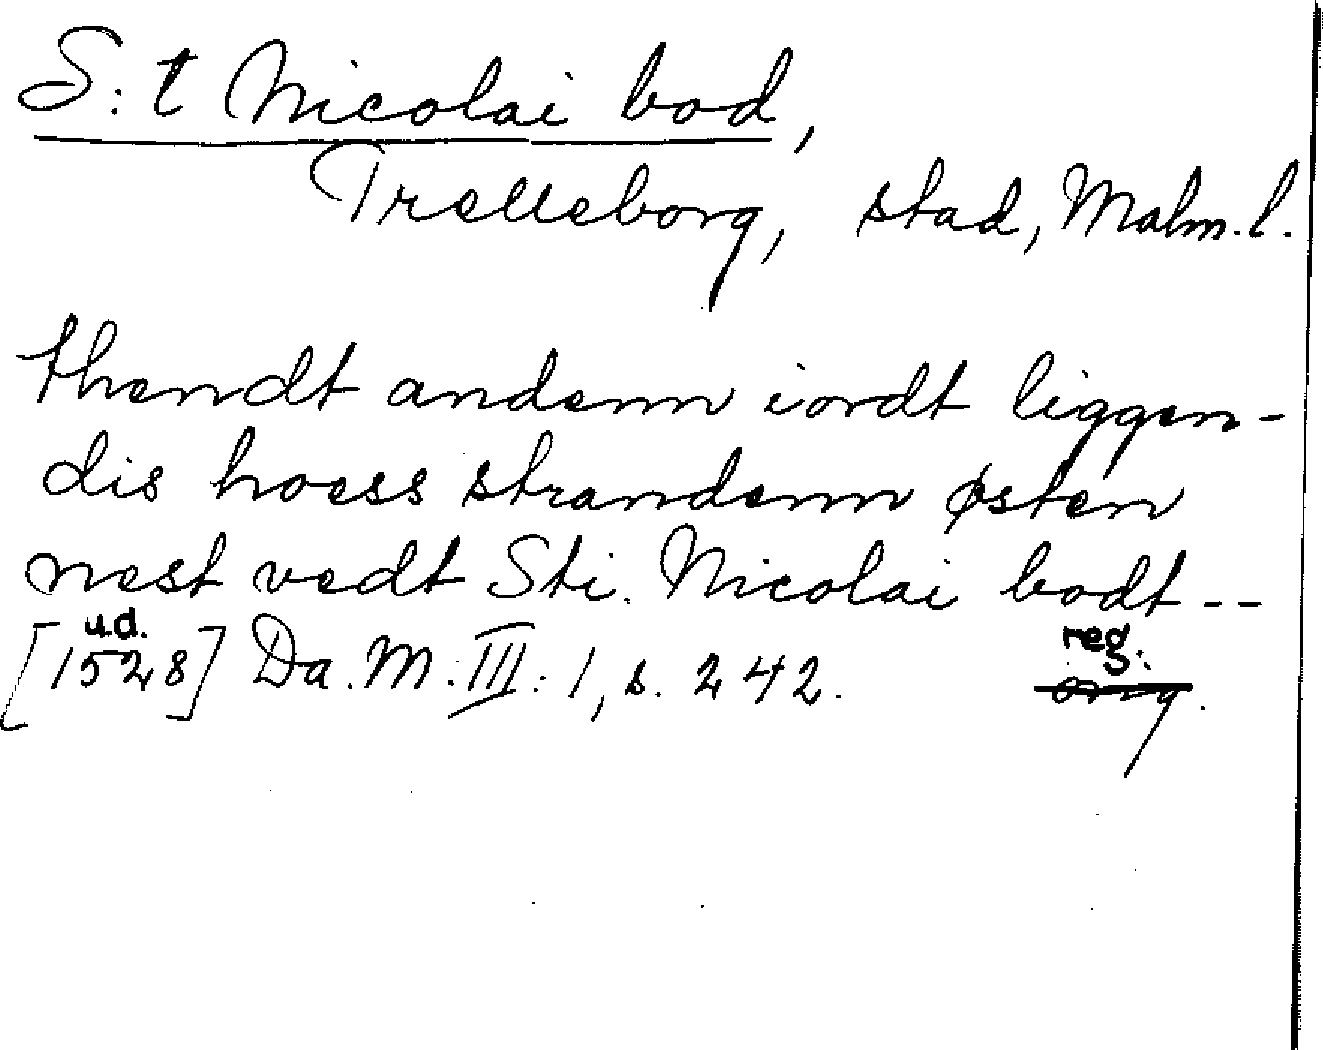 S:t Nicolai bod,
Trelleborg, stad, Malm. l.
thendt andenn iordt liggen-
dis hoess strandenn østen
nest vedt Sti. Nicolai bodt--
u.d.
[1528] Da. M. III: 1, s. 242.
reg.
orig.